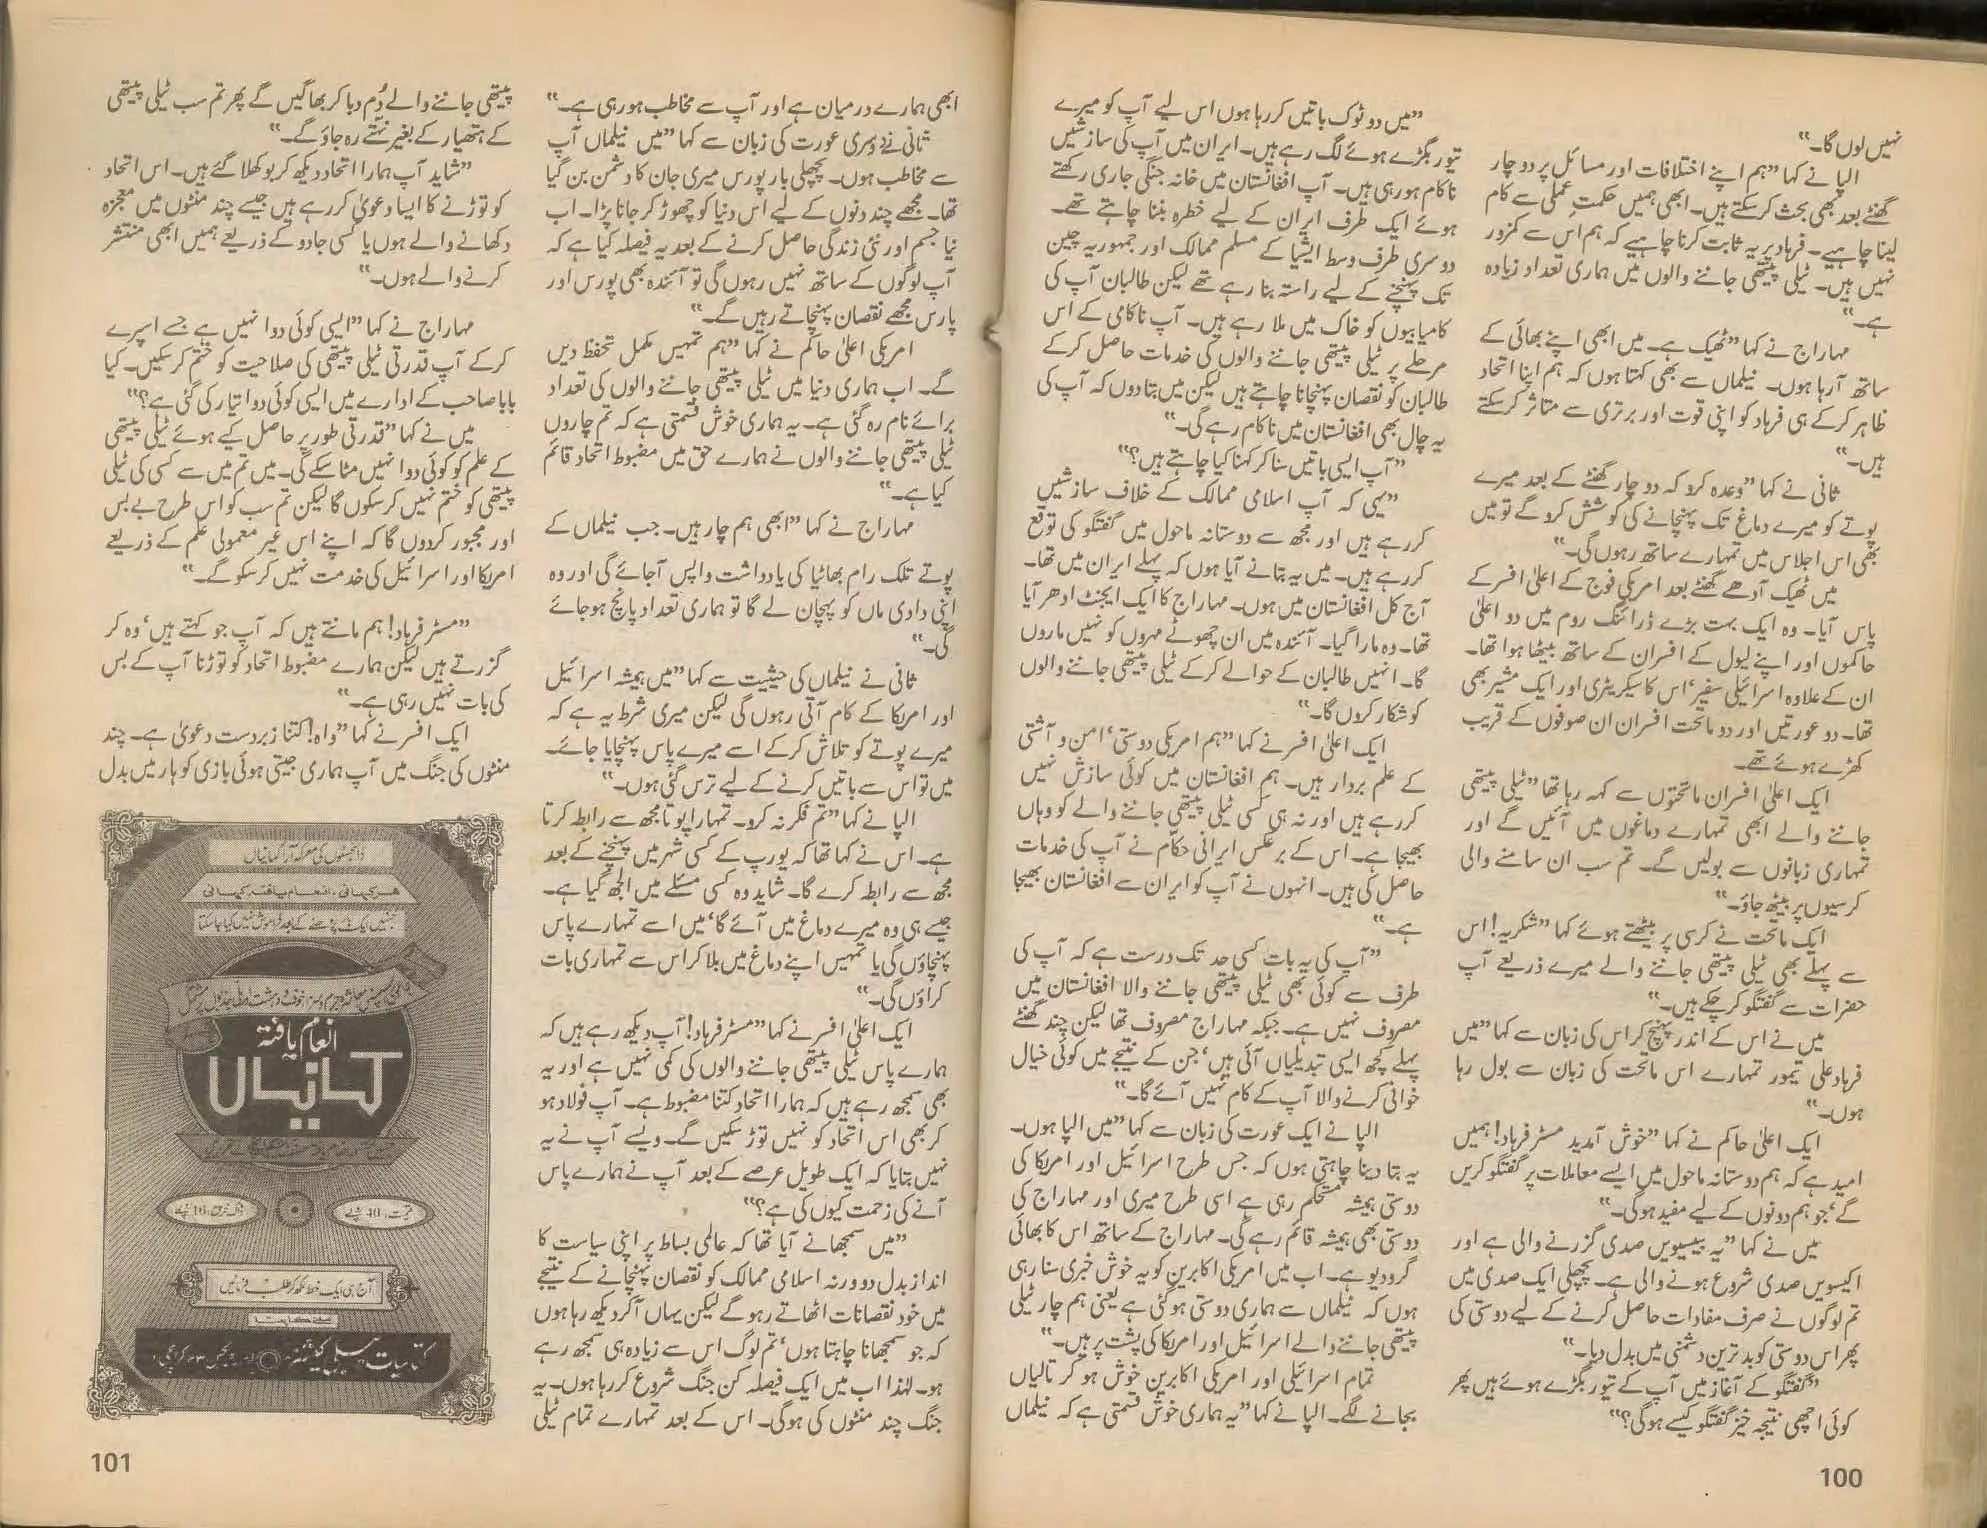 نہیں لوں گا۔"
الپا نے کہا "ہم اپنے اختلافات اور مسائل پر دو چار
گھنٹے بعد بھی بحث کر سکتے ہیں۔ ابھی ہمیں حکمتِ عملی سے کام
لینا چاہیے۔ فرہاد پر یہ ثابت کرنا چاہیے کہ ہم اس سے کمزور
نہیں ہیں۔ ٹیلی پیتھی جاننے والوں میں ہماری تعداد زیادہ
ہے۔"
مہاراج نے کہا "ٹھیک ہے۔ میں ابھی اپنے بھائی کے
ساتھ آ رہا ہوں۔ نیلماں سے بھی کہتا ہوں کہ ہم اپنا اتحاد
ظاہر کر کے ہی فرہاد کو اپنی قوت اور برتری سے متاثر کر سکتے
ہیں۔"
ثانی نے کہا "وعدہ کرو کہ دو چار گھنٹے کے بعد میرے
پوتے کو میرے دماغ تک پہنچانے کی کوشش کرو گے تو میں
بھی اس اجلاس میں تمہارے ساتھ رہوں گی۔"
میں ٹھیک آدھے گھنٹے بعد امریکی فوج کے اعلیٰ افسر کے
پاس آیا۔ وہ ایک بہت بڑے ڈرائنگ روم میں دو اعلیٰ
حاکموں اور اپنے لیول کے افسران کے ساتھ بیٹھا ہوا تھا۔
ان کے علاوہ اسرائیلی سفیر، اس کا سیکریٹری اور ایک مشیر بھی
تھا۔ دو عورتیں اور دو ماتحت افسران ان صوفوں کے قریب
کھڑے ہوئے تھے۔
ایک اعلیٰ افسران ماتحتوں سے کہہ رہا تھا "ٹیلی پیتھی
جاننے والے ابھی تمہارے دماغوں میں آئیں گے اور
تمہاری زبانوں سے بولیں گے۔ تم سب ان سامنے والی
کرسیوں پر بیٹھ جاؤ۔"
ایک ماتحت نے کرسی پر بیٹھتے ہوئے کہا "شکریہ! اس
سے پہلے بھی ٹیلی پیتھی جاننے والے میرے ذریعے آپ
حضرات سے گفتگو کر چکے ہیں۔"
میں نے اس کے اندر پہنچ کر اس کی زبان سے کہا "میں
فرہاد علی تیمور تمہارے اس ماتحت کی زبان سے بول رہا
ہوں۔"
ایک اعلیٰ حاکم نے کہا "خوش آمدید مسٹر فرہاد! ہمیں
امید ہے کہ ہم دوستانہ ماحول میں ایسے معاملات پر گفتگو کریں
گے، جو ہم دونوں کے لیے مفید ہوگی۔"
میں نے کہا "یہ بیسویں صدی گزرنے والی ہے اور
اکیسویں صدی شروع ہونے والی ہے۔ پچھلی ایک صدی میں
تم لوگوں نے صرف مفادات حاصل کرنے کے لیے دوستی کی
پھر اس دوستی کو بدترین دشمنی میں بدل دیا۔"
"گفتگو کے آغاز میں آپ کے تیور بگڑے ہوئے ہیں پھر
کوئی اچھی نتیجہ خیز گفتگو کیسے ہوگی؟"
"میں دو ٹوک باتیں کر رہا ہوں اس لیے آپ کو میرے
تیور بگڑے ہوئے لگ رہے ہیں۔ ایران میں آپ کی سازشیں
ناکام ہو رہی ہیں۔ آپ افغانستان میں خانہ جنگی جاری رکھتے
ہوئے ایک طرف ایران کے لیے خطرہ بننا چاہتے تھے۔
دوسری طرف وسط ایشیا کے مسلم ممالک اور جمہوریہ چین
تک پہنچنے کے لیے راستہ بنا رہے تھے لیکن طالبان آپ کی
کامیابیوں کو خاک میں ملا رہے ہیں۔ آپ ناکامی کے اس
مرحلے پر ٹیلی پیتھی جاننے والوں کی خدمات حاصل کر کے
طالبان کو نقصان پہنچانا چاہتے ہیں لیکن میں بتا دوں کہ آپ کی
یہ چال بھی افغانستان میں ناکام رہے گی۔"
"آپ ایسی باتیں سنا کر کہنا کیا چاہتے ہیں؟"
"یہی کہ آپ اسلامی ممالک کے خلاف سازشیں
کر رہے ہیں اور مجھ سے دوستانہ ماحول میں گفتگو کی توقع
کر رہے ہیں۔ میں یہ بتانے آیا ہوں کہ پہلے ایران میں تھا۔
آج کل افغانستان میں ہوں۔ مہاراج کا ایک ایجنٹ ادھر آیا
تھا۔ وہ مارا گیا۔ آئندہ میں ان چھوٹے مہروں کو نہیں ماروں
گا۔ انہیں طالبان کے حوالے کر کے ٹیلی پیتھی جاننے والوں
کو شکار کروں گا۔"
ایک اعلیٰ افسر نے کہا "ہم امریکی دوستی، امن و آشتی
کے علم بردار ہیں۔ ہم افغانستان میں کوئی سازش نہیں
کر رہے ہیں اور نہ ہی کسی ٹیلی پیتھی جاننے والے کو وہاں
بھیجا ہے۔ اس کے برعکس ایرانی حکّام نے آپ کی خدمات
حاصل کی ہیں۔ انہوں نے آپ کو ایران سے افغانستان بھیجا
ہے۔"
"آپ کی یہ بات کسی حد تک درست ہے کہ آپ کی
طرف سے کوئی بھی ٹیلی پیتھی جاننے والا افغانستان میں
مصروف نہیں ہے۔ جبکہ مہاراج مصروف تھا لیکن چند گھنٹے
پہلے کچھ ایسی تبدیلیاں آئی ہیں، جن کے نتیجے میں کوئی خیال
خوانی کرنے والا آپ کے کام نہیں آئے گا۔"
الپا نے ایک عورت کی زبان سے کہا "میں الپا ہوں۔
یہ بتا دینا چاہتی ہوں کہ جس طرح اسرائیل اور امریکا کی
دوستی ہمیشہ مستحکم رہی ہے اسی طرح میری اور مہاراج کی
دوستی بھی ہمیشہ قائم رہے گی۔ مہاراج کے ساتھ اس کا بھائی
گرودیو ہے۔ اب میں امریکی اکابرین کو یہ خوش خبری سنا رہی
ہوں کہ نیلماں سے ہماری دوستی ہو گئی ہے یعنی ہم چار ٹیلی
پیتھی جاننے والے اسرائیل اور امریکا کی پشت پر ہیں۔"
تمام اسرائیلی اور امریکی اکابرین خوش ہو کر تالیاں
بجانے لگے۔ الپا نے کہا "یہ ہماری خوش قسمتی ہے کہ نیلماں
100
ابھی ہمارے درمیان ہے اور آپ سے مخاطب ہو رہی ہے۔"
ثانی نے دوسری عورت کی زبان سے کہا "میں نیلماں آپ
سے مخاطب ہوں۔ پچھلی بار پورس میری جان کا دشمن بن گیا
تھا۔ مجھے چند دنوں کے لیے اس دنیا کو چھوڑ کر جانا پڑا۔ اب
نیا جسم اور نئی زندگی حاصل کرنے کے بعد یہ فیصلہ کیا ہے کہ
آپ لوگوں کے ساتھ نہیں رہوں گی تو آئندہ بھی پورس اور
پارس مجھے نقصان پہنچاتے رہیں گے۔"
امریکی اعلیٰ حاکم نے کہا "ہم تمہیں مکمل تحفظ دیں
گے۔ اب ہماری دنیا میں ٹیلی پیتھی جاننے والوں کی تعداد
برائے نام رہ گئی ہے۔ یہ ہماری خوش قسمتی ہے کہ تم چاروں
ٹیلی پیتھی جاننے والوں نے ہمارے حق میں مضبوط اتحاد قائم
کیا ہے۔"
مہاراج نے کہا "ابھی ہم چار ہیں۔ جب نیلماں کے
پوتے تلک رام بھاٹیا کی یادداشت واپس آجائے گی اور وہ
اپنی دادی ماں کو پہچان لے گا تو ہماری تعداد پانچ ہو جائے
گی۔"
ثانی نے نیلماں کی حیثیت سے کہا "میں ہمیشہ اسرائیل
اور امریکا کے کام آتی رہوں گی لیکن میری شرط یہ ہے کہ
میرے پوتے کو تلاش کر کے اسے میرے پاس پہنچایا جائے۔
میں تو اس سے باتیں کرنے کے لیے ترس گئی ہوں۔"
الپا نے کہا "تم فکر نہ کرو۔ تمہارا پوتا مجھ سے رابطہ کرتا
ہے۔ اس نے کہا تھا کہ یورپ کے کسی شہر میں پہنچنے کے بعد
مجھ سے رابطہ کرے گا۔ شاید وہ کسی مسئلے میں الجھ گیا ہے۔
جیسے ہی وہ میرے دماغ میں آئے گا، میں اسے تمہارے پاس
پہنچاؤں گی یا تمہیں اپنے دماغ میں بلا کر اس سے تمہاری بات
کراؤں گی۔"
ایک اعلیٰ افسر نے کہا "مسٹر فرہاد! آپ دیکھ رہے ہیں کہ
ہمارے پاس ٹیلی پیتھی جاننے والوں کی کمی نہیں ہے اور یہ
بھی سمجھ رہے ہیں کہ ہمارا اتحاد کتنا مضبوط ہے۔ آپ فولاد ہو
کر بھی اس اتحاد کو نہیں توڑ سکیں گے۔ ویسے آپ نے یہ
نہیں بتایا کہ ایک طویل عرصے کے بعد آپ نے ہمارے پاس
آنے کی زحمت کیوں کی ہے؟"
"میں سمجھانے آیا تھا کہ عالمی بساط پر اپنی سیاست کا
انداز بدل دو ورنہ اسلامی ممالک کو نقصان پہنچانے کے نتیجے
میں خود نقصانات اٹھاتے رہو گے لیکن یہاں آکر دیکھ رہا ہوں
کہ جو سمجھانا چاہتا ہوں، تم لوگ اس سے زیادہ ہی سمجھ رہے
ہو۔ لہٰذا اب میں ایک فیصلہ کن جنگ شروع کر رہا ہوں۔ یہ
جنگ چند منٹوں کی ہوگی۔ اس کے بعد تمہارے تمام ٹیلی
پیتھی جاننے والے دُم دبا کر بھاگیں گے پھر تم سب ٹیلی پیتھی
کے ہتھیار کے بغیر نہتّے رہ جاؤ گے۔"
"شاید آپ ہمارا اتحاد دیکھ کر بوکھلا گئے ہیں۔ اس اتحاد
کو توڑنے کا ایسا دعویٰ کر رہے ہیں جیسے چند منٹوں میں معجزہ
دکھانے والے ہوں یا کسی جادو کے ذریعے ہمیں ابھی منتشر
کرنے والے ہوں۔"
مہاراج نے کہا "ایسی کوئی دوا نہیں ہے جسے اسپرے
کر کے آپ قدرتی ٹیلی پیتھی کی صلاحیت کو ختم کر سکیں۔ کیا
بابا صاحب کے ادارے میں ایسی کوئی دوا تیار کی گئی ہے؟"
میں نے کہا "قدرتی طور پر حاصل کیے ہوئے ٹیلی پیتھی
کے علم کو کوئی دوا نہیں مٹا سکے گی۔ میں تم میں سے کسی کی ٹیلی
پیتھی کو ختم نہیں کر سکوں گا لیکن تم سب کو اس طرح بے بس
اور مجبور کر دوں گا کہ اپنے اس غیر معمولی علم کے ذریعے
امریکا اور اسرائیل کی خدمت نہیں کر سکو گے۔"
"مسٹر فرہاد! ہم مانتے ہیں کہ آپ جو کہتے ہیں، وہ کر
گزرتے ہیں لیکن ہمارے مضبوط اتحاد کو توڑنا آپ کے بس
کی بات نہیں رہی ہے۔"
ایک افسر نے کہا "واہ! کتنا زبردست دعویٰ ہے۔ چند
منٹوں کی جنگ میں آپ ہماری جیتی ہوئی بازی کو ہار میں بدل
ڈائجسٹوں کی معرکہ آرا کہانیاں
ہر کہانی، انعام یافتہ کہانی
جنہیں ایک بار پڑھنے کے بعد فراموش نہیں کیا جا سکتا
انعام یافتہ
کہانیاں
قیمت، 40 روپے
ڈاک خرچ، 16 روپے
آج ہی ایک خط لکھ کر طلب فرمائیں
کتابیات پبلی کیشنز
101